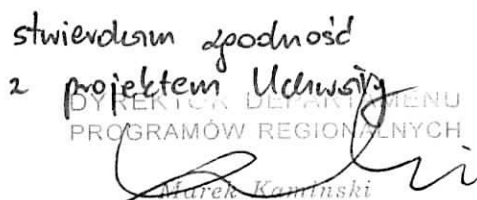 stwierdzam zgodność
z projektem Uchwały
DYREKTOR DEPARTAMENU
PROGRAMÓW REGIONALNYCH
Marek Kamiński